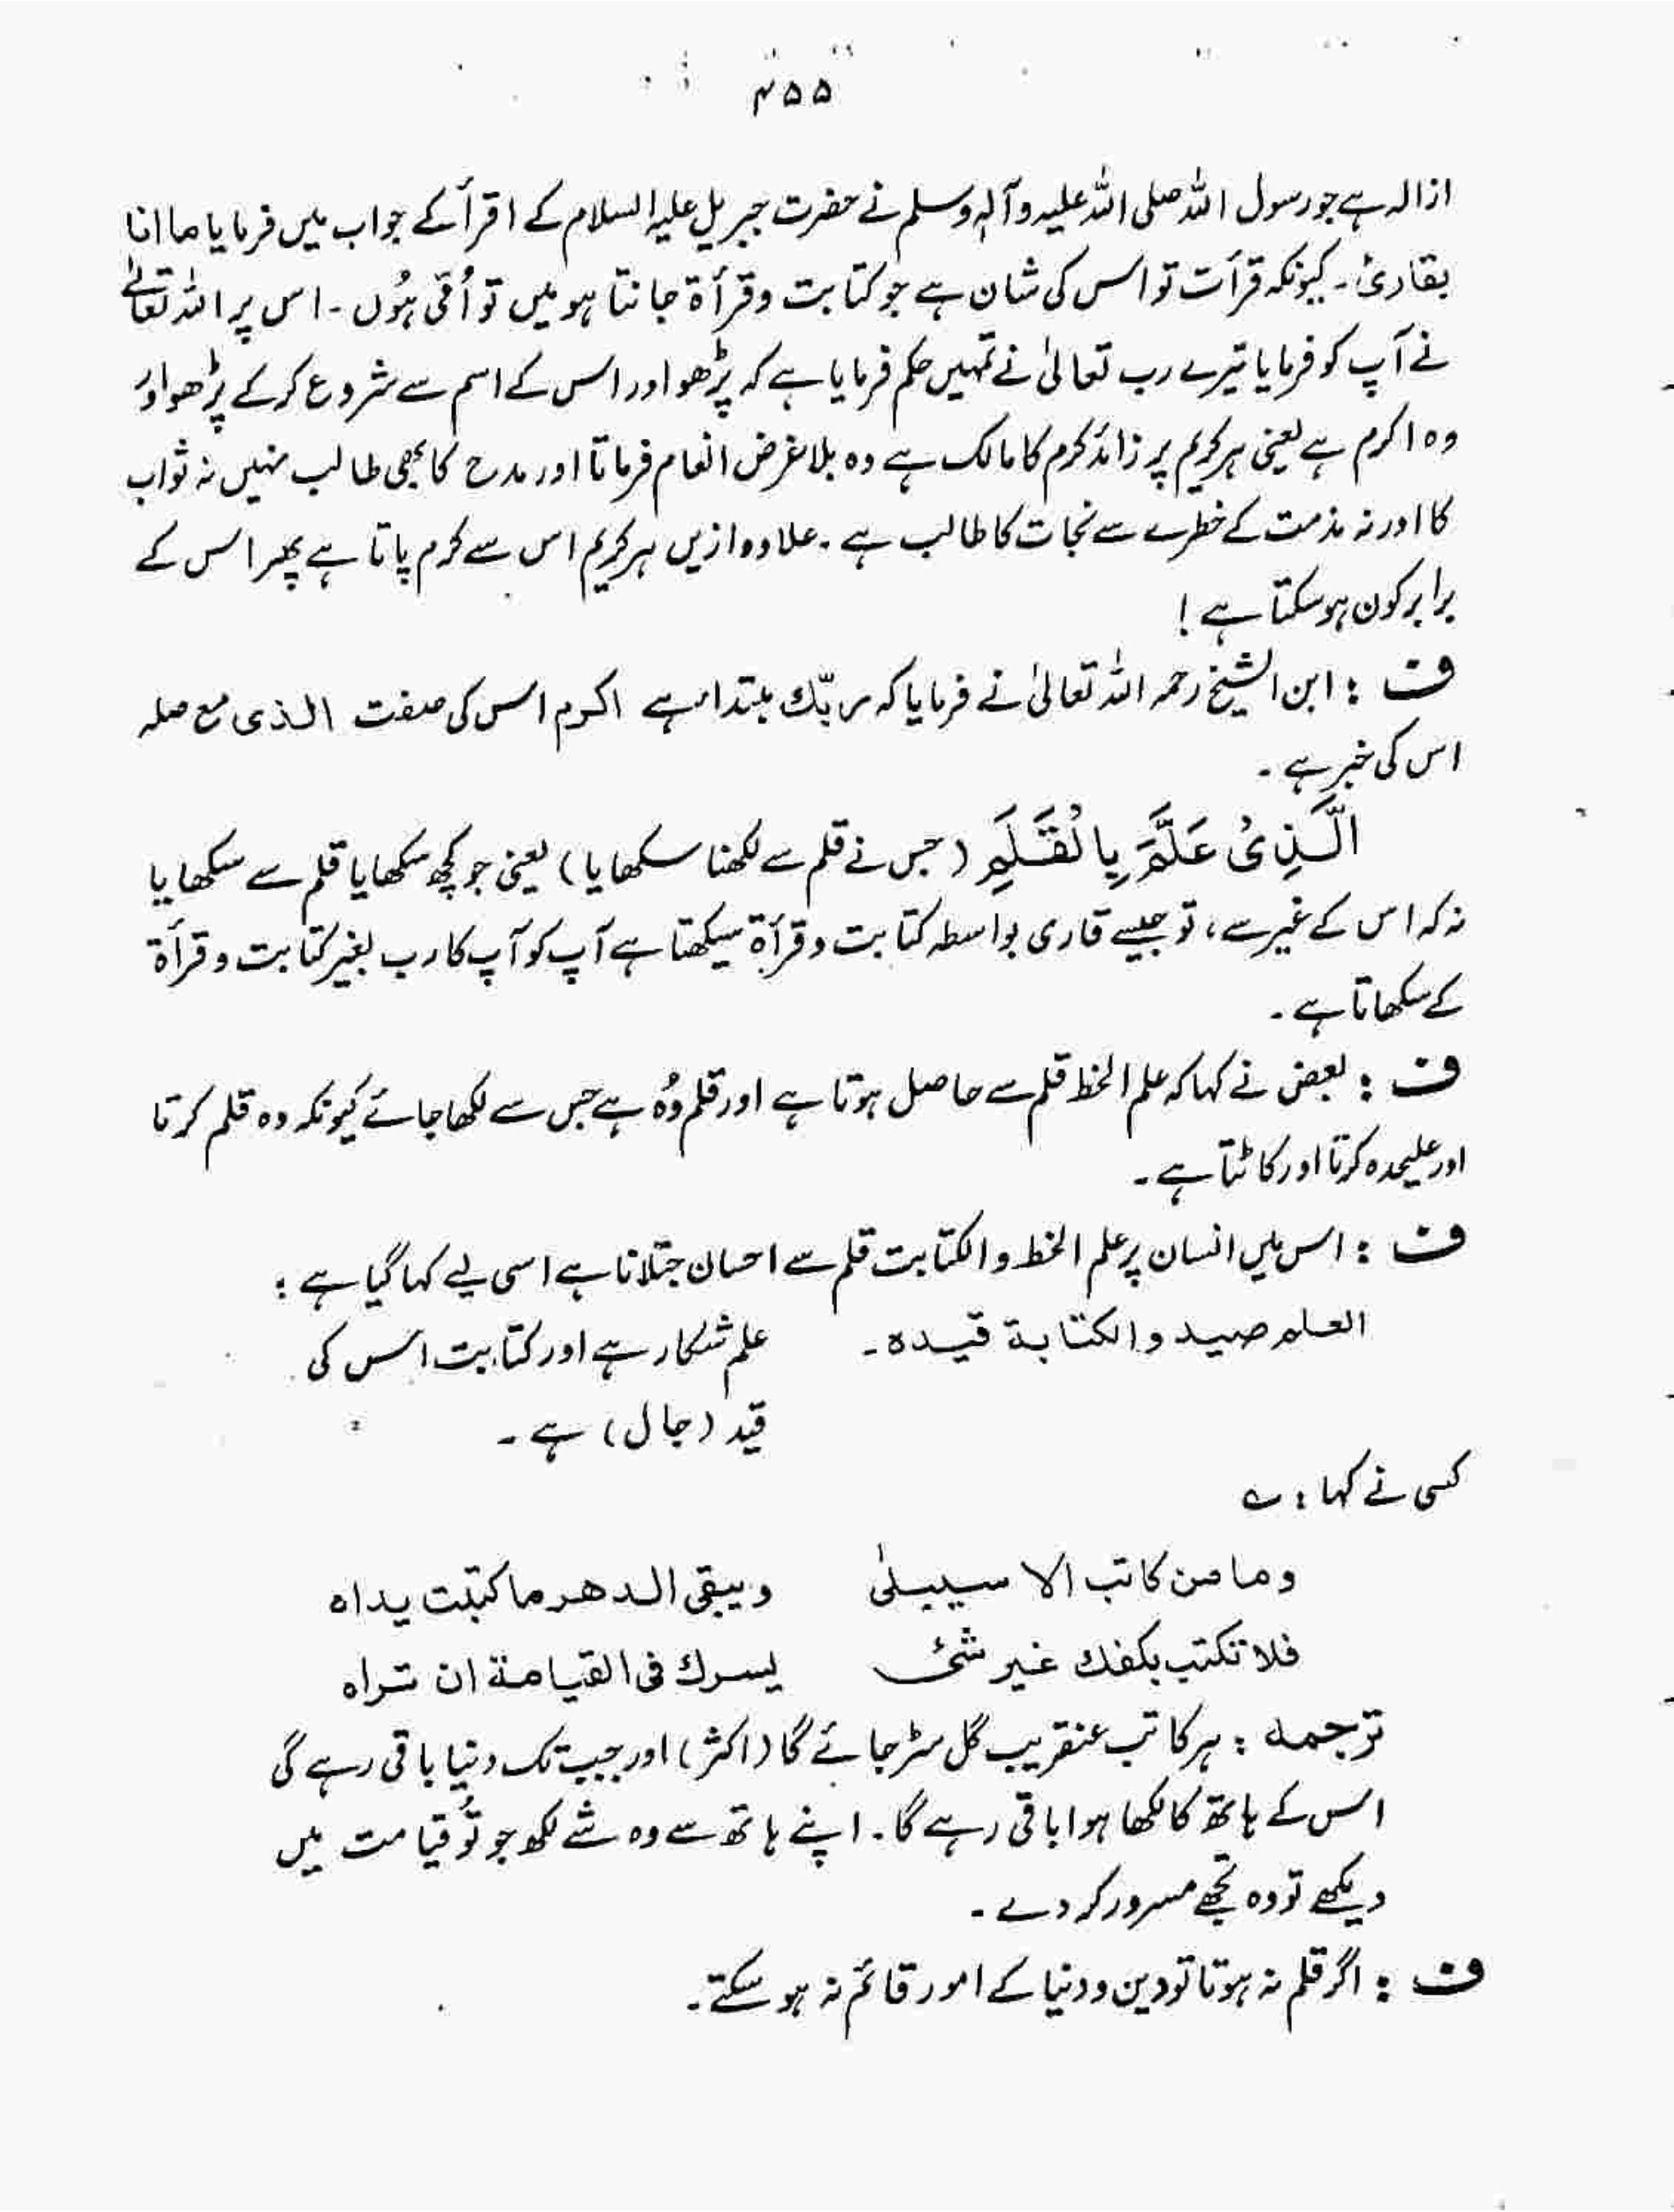 ۴۵۵
ازالہ ہے جو رسول اللہ صلی اللہ علیہ وآلہٖ وسلم نے حضرت جبریل علیہ السلام کے اقرأ کے جواب میں فرمایا ما انا
بقاریٔ۔ کیونکہ قرأت تو اس کی شان ہے جو کتابت و قرأۃ جانتا ہو میں تو اُمّی ہُوں۔ اس پر اللہ تعالیٰ
نے آپ کو فرمایا تیرے رب تعالیٰ نے تمہیں حکم فرمایا ہے کہ پڑھو اور اس کے اسم سے شروع کر کے پڑھو اور
وہ اکرم ہے یعنی ہر کریم پر زائد کرم کا مالک ہے وہ بلا غرض انعام فرماتا اور مدح کا بھی طالب نہیں نہ ثواب
کا اور نہ مذمت کے خطرے سے نجات کا طالب ہے۔ علاوہ ازیں ہر کریم اس سے کرم پاتا ہے پھر اس کے
برابر کون ہو سکتا ہے!
ف : ابن الشیخ رحمہ اللہ تعالیٰ نے فرمایا کہ ربّك مبتدا ہے اکرم اس کی صفت الذی مع صلہ
اس کی خبر ہے۔
الَّذِیْ عَلَّمَ بِالْقَلَمِ (جس نے قلم سے لکھنا سکھایا) یعنی جو کچھ سکھایا قلم سے سکھایا
نہ کہ اس کے غیر سے، تو جیسے قاری بواسطہ کتابت و قرأۃ سیکھتا ہے آپ کو آپ کا رب بغیر کتابت و قرأۃ
کے سکھاتا ہے۔
ف : بعض نے کہا کہ علم الخط قلم سے حاصل ہوتا ہے اور قلم وُہ ہے جس سے لکھا جائے کیونکہ وہ قلم کرتا
اور علیحدہ کرتا اور کاٹتا ہے۔
ف : اس میں انسان پر علم الخط والکتابت قلم سے احسان جتلانا ہے اسی لیے کہا گیا ہے :
العلم صید والکتابة قیدہ۔ علم شکار ہے اور کتابت اس کی
قید (جال) ہے۔
کسی نے کہا : ؎
وما من کاتب الا سیبلیٰ ویبقی الدھر ما کتبت یداہ
فلا تکتب بکفك غیر شئ یسرك فی القیامة ان تراہ
ترجمہ : ہر کاتب عنقریب گل سڑ جائے گا (اکثر) اور جب تک دنیا باقی رہے گی
اس کے ہاتھ کا لکھا ہوا باقی رہے گا۔ اپنے ہاتھ سے وہ شے لکھ جو تُو قیامت میں
دیکھے تو وہ تجھے مسرور کر دے۔
ف : اگر قلم نہ ہوتا تو دین و دنیا کے امور قائم نہ ہو سکتے۔